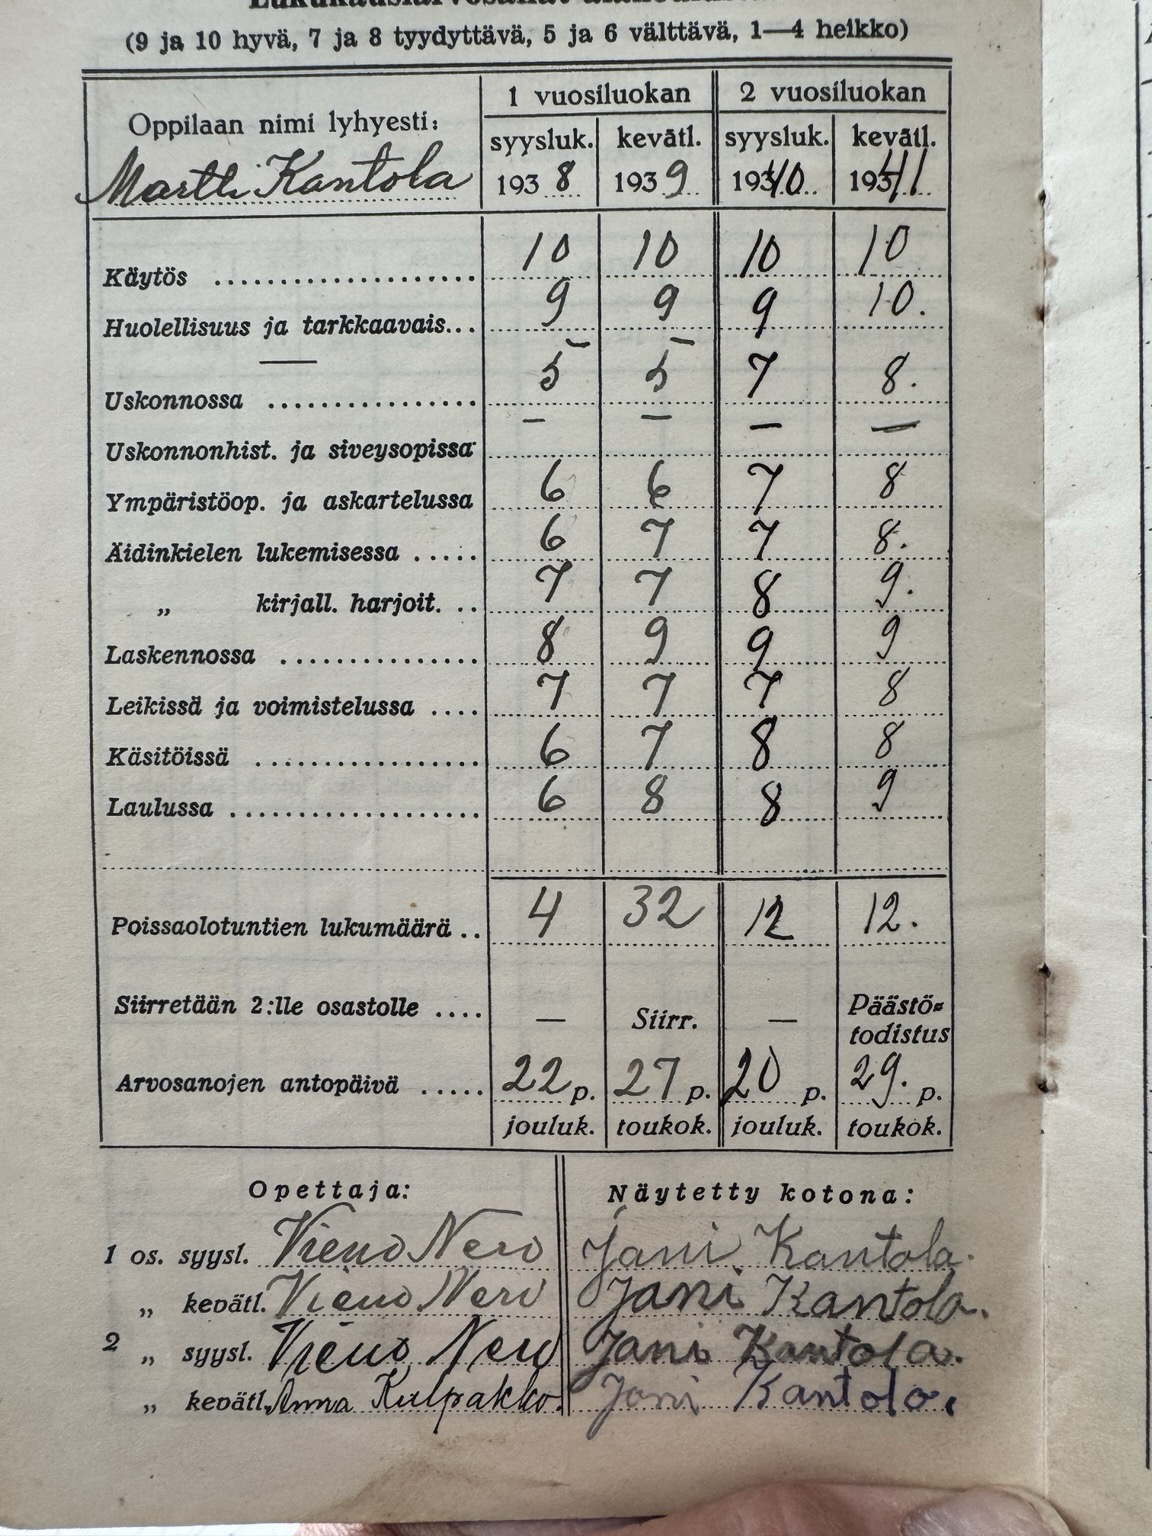 (9 ja 10 hyvä, 7 ja 8 tyydyttävä, 5 ja 6 välttävä, 1—4 heikko)
Oppilaan nimi lyhyesti: 1 vuosiluokan 2 vuosiluokan
syysluk. kevätl. syysluk. kevätl.
Martti Kantola 193 8 193 9 19340 19341
Käytös 10 10 10 10
Huolellisuus ja tarkkaavais... 9 9 9 10.
Uskonnossa 5- 5- 7 8.
Uskonnonhist. ja siveysopissa — — — —
Ympäristöop. ja askartelussa 6 6 7 8
Äidinkielen lukemisessa ..... 6 7 7 8.
„ kirjall. harjoit. .. 7 7 8 9.
Laskennossa 8 9 9 9
Leikissä ja voimistelussa .... 7 7 7 8
Käsitöissä 6 7 8 8
Laulussa 6 8 8 9
Poissaolotuntien lukumäärä .. 4 32 12 12.
Siirretään 2:lle osastolle .... — Siirr. — Päästö-
todistus
Arvosanojen antopäivä ..... 22 p. 27 p. 20 p. 29. p.
jouluk. toukok. jouluk. toukok.
Opettaja: Näytetty kotona:
1 os. syysl. Vieno Nero Jani Kantola.
„ kevätl. Vieno Nero Jani Kantola.
2 „ syysl. Vieno Nero Jani Kantola.
„ kevätl. Anna Kulpakko. Jani Kantola.